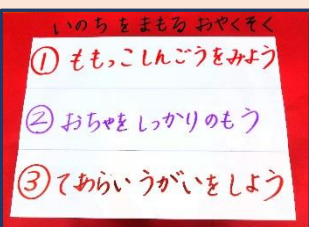 いのちをまもるおやくそく
① ももっこしんごうをみよう
② おちゃをしっかりのもう
③ てあらいうがいをしよう